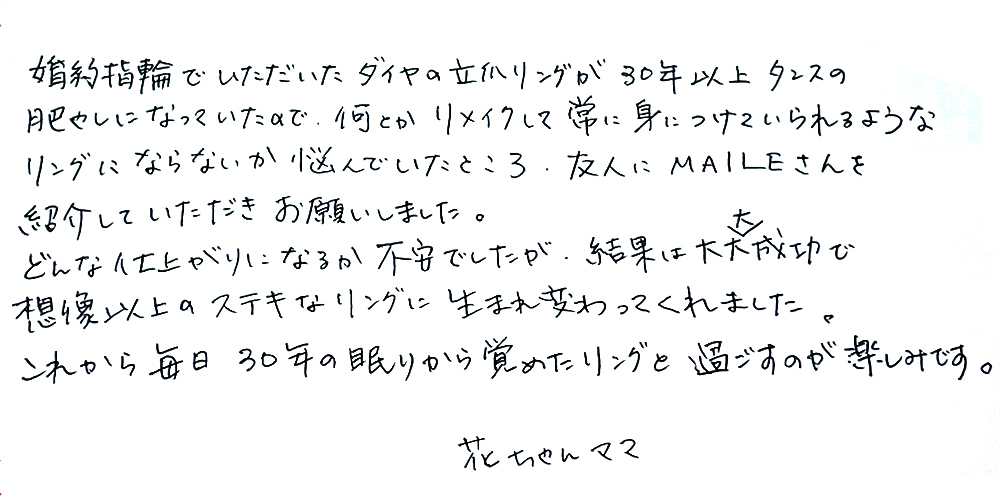 婚約指輪でいただいたダイヤの立爪リングが30年以上タンスの
肥やしになっていたので、何とかリメイクして常に身につけていられるような
リングにならないか悩んでいたところ、友人にMAILEさんを
紹介していただきお願いしました。
どんな仕上がりになるか不安でしたが、結果は大大大成功で
想像以上のステキなリングに生まれ変わってくれました。
これから毎日30年の眠りから覚めたリングと過ごすのが楽しみです。
花ちゃんママ